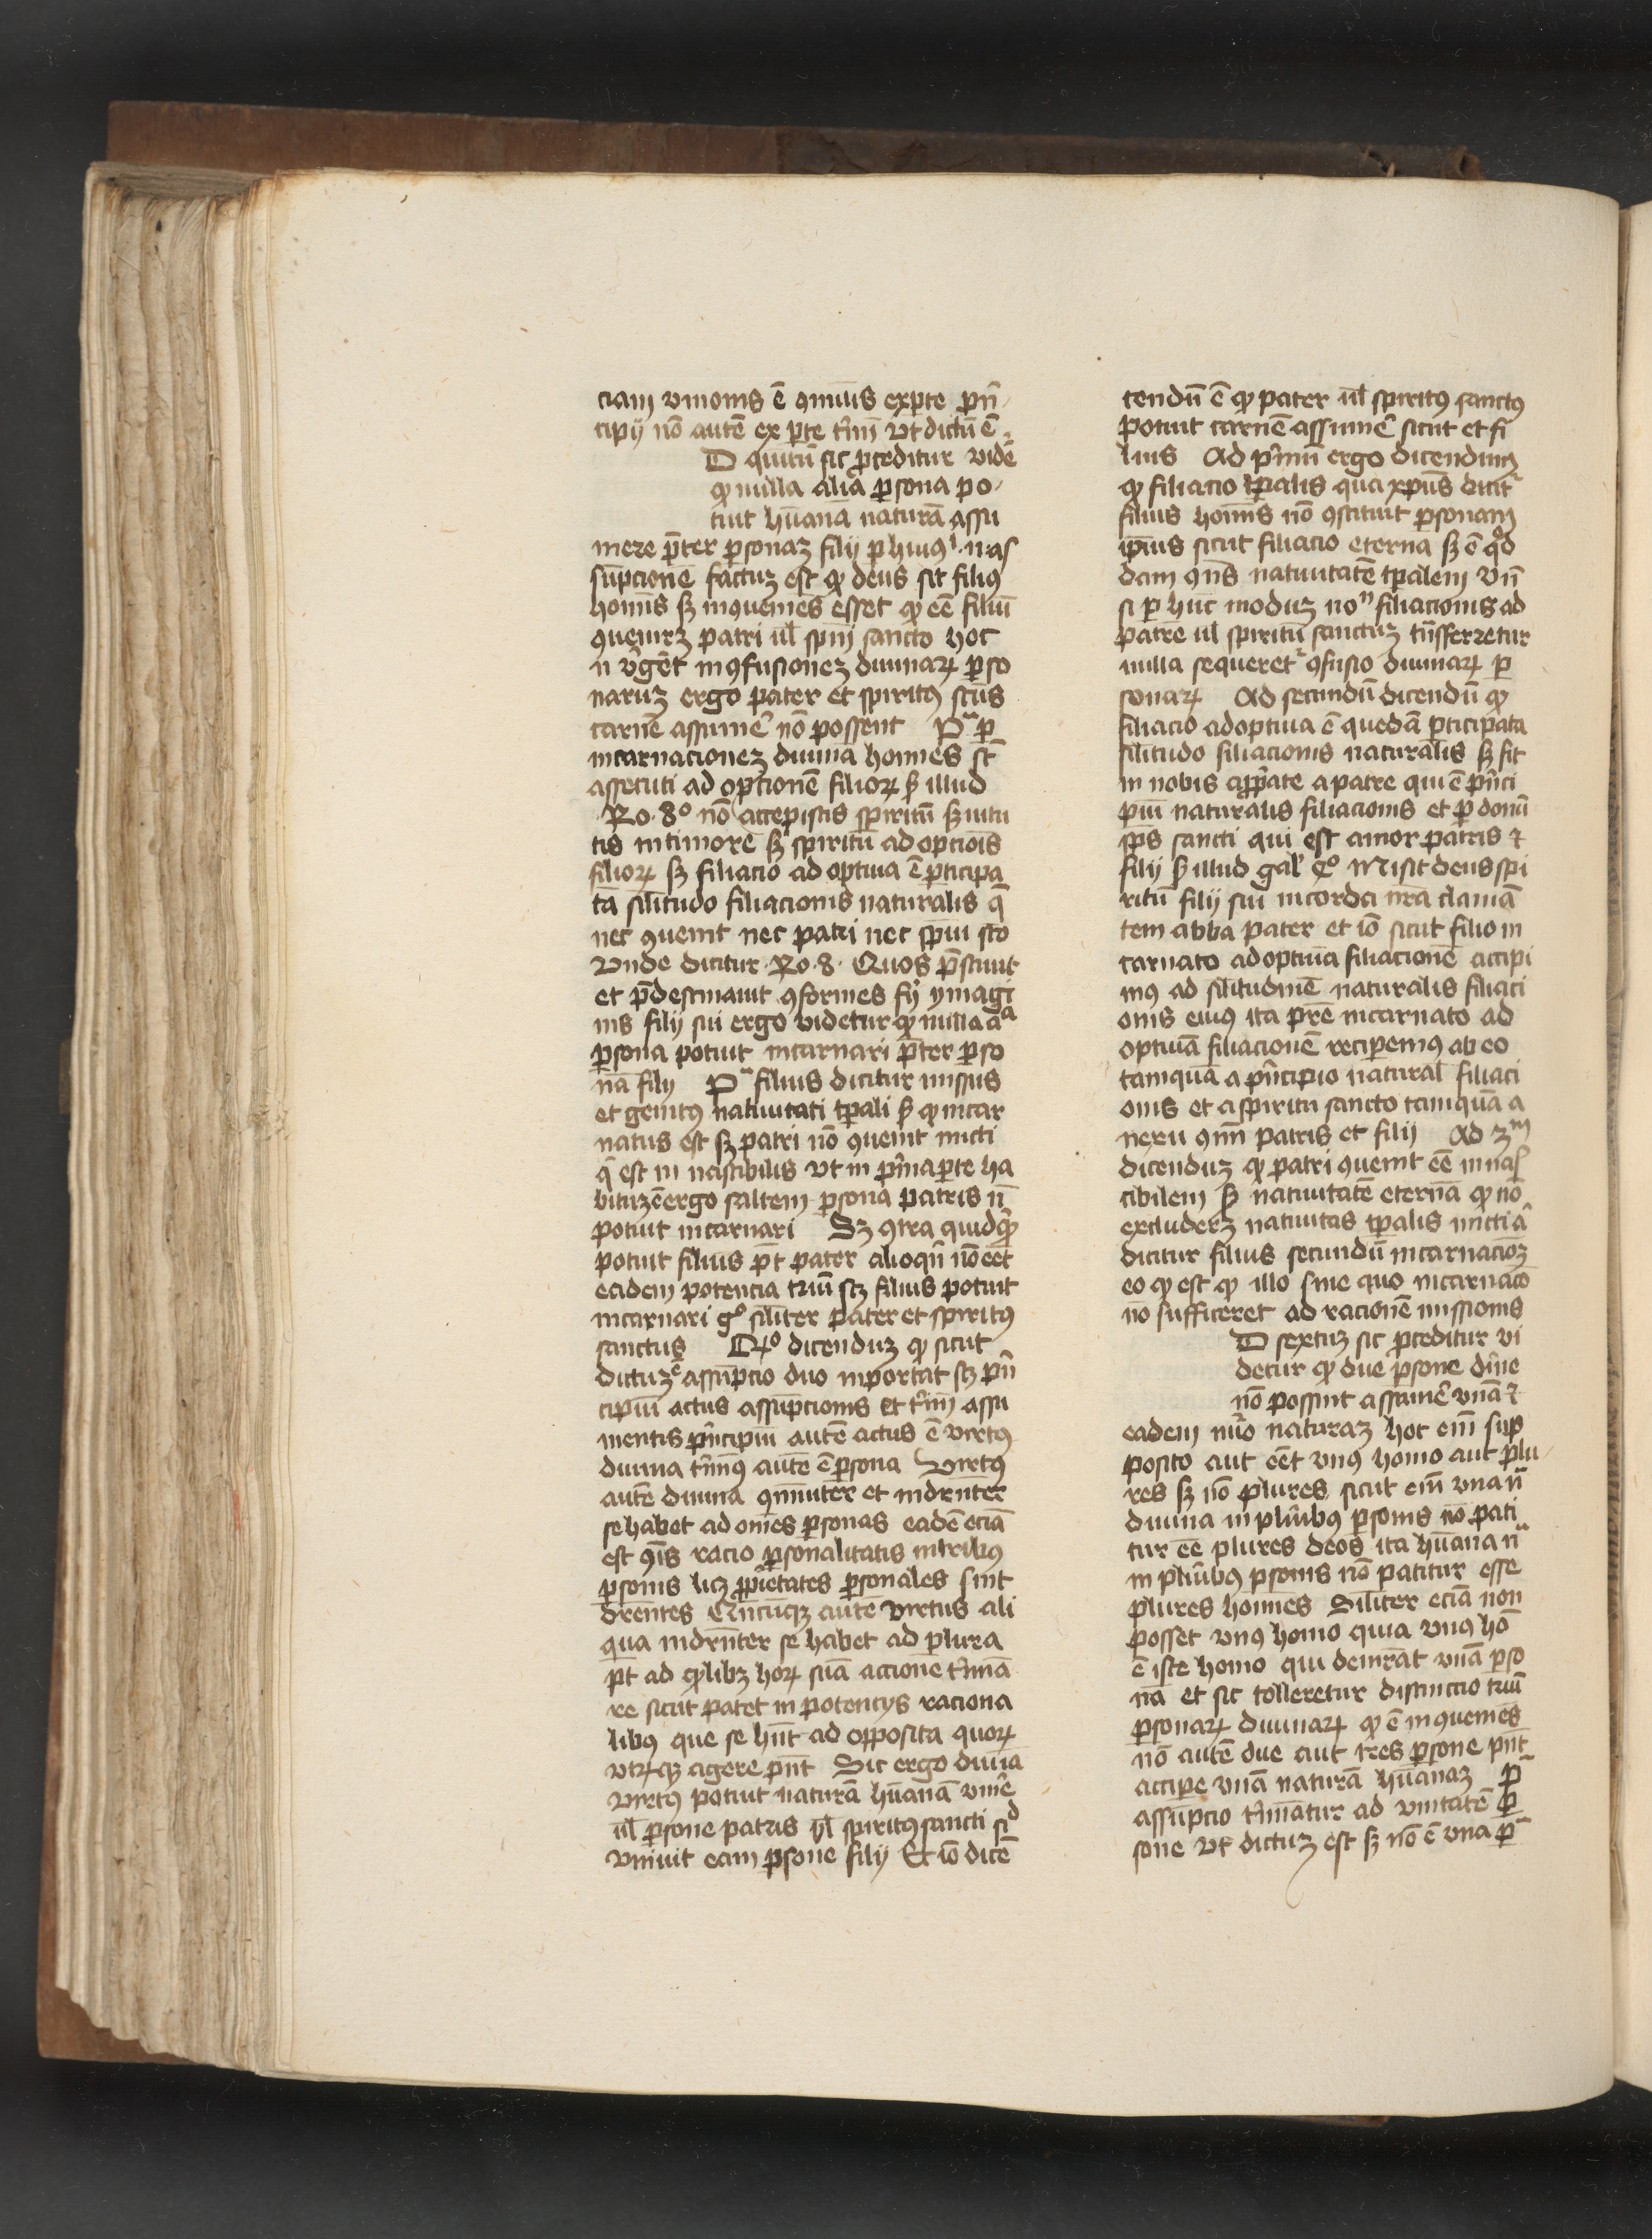 ciam vnionis ē ꝯmūis exꝑte pn̄
cipij nō autē ex ꝑte t'mī vt dictū ē
D quītū sic ꝓceditur vidē
ꝙ nulla alia ꝑsona po
tuit hūanā naturā assu
mere p̄ter ꝑsonaꝫ filij ꝑ hmōi as
sūpcionē factuꝫ est ꝙ deus sit filiꝰ
homīs sꝫ inꝯueniēs esset ꝙ eē filiū
ꝯueniꝛꝫ patri ul̄ spūi sancto hoc
n̄ v̓gēt inꝯfusioneꝫ diuinaꝝ ꝑso
naruꝫ ergo pater et spiritꝰ scūs
carnē assume᷒ nō possent P̄ ꝑ
incarnacioneꝫ diuinā hom̄es st̄
assecuti adopcionē filioꝝ ẜ illud
Ro · 8º nō accepistis spiritū ẜuitu
tis in timore sꝫ spiritū adopcōis
filioꝝ sꝫ filiacio adoptiua ē ꝑticipa
ta sil̄itudo filiacionis naturalis q̄
nec ꝯuenit nec patri nec spūi sc̄o
Vnde dicitur · Ro · 8 · Quos p̄sciuit
et p̄destinauit ꝯformes fi̓ ymagi
nis filij sui ergo videtur ꝙ nulla aᵃ
ꝑsona potuit incarnari p̄ter ꝑso
nā filij P̄ filius dicitur missus
et genitꝰ natiuitati tꝑali ẜ ꝙ incar
natus est sꝫ patri nō ꝯuenit micti
q̓ est in nascibilis vt in p̓ma ꝑte ha
bituꝫ ē ergo saltem ꝑsona patris n̄
potuit incarnari Sꝫ ꝯtra quidꝙ̓
potuit filius pt̄ pater alioqn̄ nō eēt
eadem potencia triū scꝫ filius potuit
incarnari gº sil̄iter pater et spiritꝰ
sanctus Rº dicenduꝫ ꝙ sicut
dictuꝫ ē assūpcio duo inportat scꝫ pn̄
cipiū actus assūpcionis et t'mī assu
mentis pn̄cipiū autē actus ē virtꝰ
diuina t'minꝰ autē ē ꝑsona Virtꝰ
autē diuina ꝯmūiter et indrn̄ter
se habet ad om̄es ꝑsonas eadē eciā
est ꝯīs racio ꝑsonalitatis in tribꝰ
ꝑsonis licꝫ ꝓp̓etates ꝑsonales sint
drēntes Qn̄cūqꝫ autē virtus ali
qua indrn̄ter se habet ad plura
pt̄ ad qꝉlibꝫ hoꝝ suā accionē t'mina
re sicut patet in potencijs raciona
libꝰ que se hn̄t ad opposita quoꝝ
vtꝛūqꝫ agere pn̄t Sic ergo diuīa
virtꝰ potuit naturā hūanā vnire
ul̄ ꝑsone patris ul̄ spiritꝰ sancti sᵈ
vniuit eam ꝑsone filij Et iō dicē
cendū ē ꝙ pater ul̄ spiritꝰ sanctꝰ
potuit carnē assume᷒ sicut et fi
lius Ad p̓mū ergo dicendum
ꝙ filiacio tꝑalis qua xp̄us dicit᷑
filius homīs nō ꝯstituit ꝑsonam
ip̄ius sicut filiacio eterna sꝫ ē qᵒd
dam ꝯn̄s natiuitatē tꝑalem vn̄
si ꝑ hūc moduꝫ noⁿ filiacionis ad
patrē ul̄ spiritū sanctuꝫ tn̄sferretur
nulla sequeret᷑ ꝯfusio diuinaꝝ ꝑ
sonaꝝ Ad secundū dicendū ꝙ
filiacio adoptiua ē quedā ꝑticipata
sil̄itudo filiacionis naturalis sꝫ fit
in nobis apꝓp̓ate a patre qui ē pn̄ci
piū naturalis filiacionis et ꝑ donū
sp̄s sancti qui est amor patris ⁊
filij ẜ illud gal̓ 4º Misit deus spi
ritū filij sui in corda nr̄a clamā
tem abba pater et iō sicut filio in
carnato adoptiuā filiacionē accipi
mꝰ ad sil̄itudinē naturalis filiaci
onis eiuꝰ ita pr̄e incarnato ad
optiuā filiacionē reciperemꝰ ab eo
tamquā a pn̄cipio natural̓ filiaci
onis et a spiritu sancto tamquā a
nexu ꝯmī patris et filij Ad 3ᵐ
dicenduꝫ ꝙ patri ꝯuenit eē innas
cibilem ẜ natiuitatē eternā ꝙ nō
excluderꝫ natiuitas tꝑalis micti a᷒
dicitur filius secundū incarnacōꝫ
eo ꝙ est ꝙ illo sine quo incarnaco
nō sufficeret ad racionē missionis
D sextuꝫ sic ꝓceditur vi
detur ꝙ due ꝑsone diīne
nō possint assume᷒ vnā ⁊
eadem nūo naturaꝫ hoc em̄ sup
posito aut eēt vnꝰ homo aut plu
res sꝫ nō plures sicut em̄ vna nᵃ
diuina in pluribꝰ ꝑsonis nō pati
tur eē plures deos ita hūana nᵃ
in pluribꝰ ꝑsonis nō patitur esse
plures hom̄es Sil̄iter eciā non
posset vnꝰ homo quia vnꝰ hō
ē iste homo qui demrāt vnā ꝑso
nā et sic tolleretur distinctio triū
ꝑsonaꝝ diuinaꝝ ꝙ ē inꝯueniēs
nō autē due aut tres ꝑsone pn̄t
accipe vnā naturā hūanaꝫ P̄
assūpcio t'minatur ad vnitatē ꝑ
sone vt dictuꝫ est sꝫ nō ē vna ꝑ